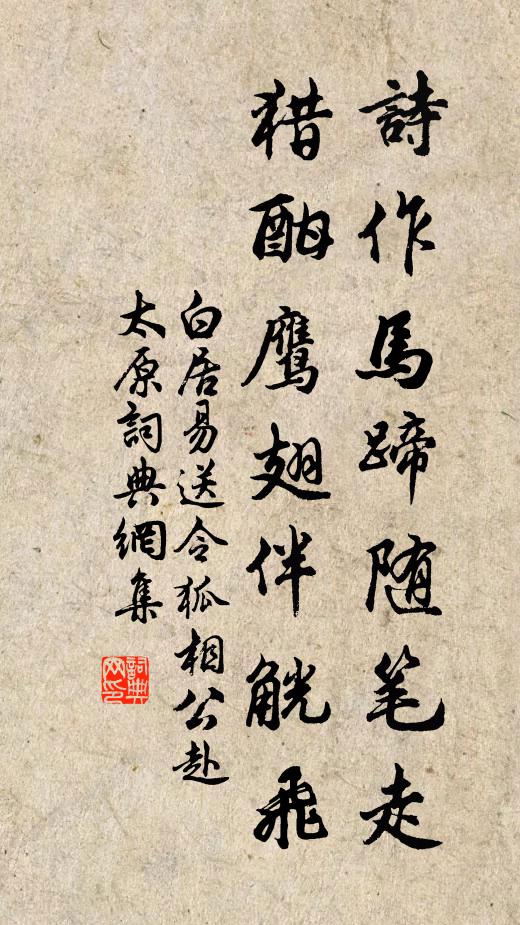 詩作馬蹄随笔走
猎酣鹰翅伴觥飛
白居易送令狐相公赴
太原詞典網集
詞典网印